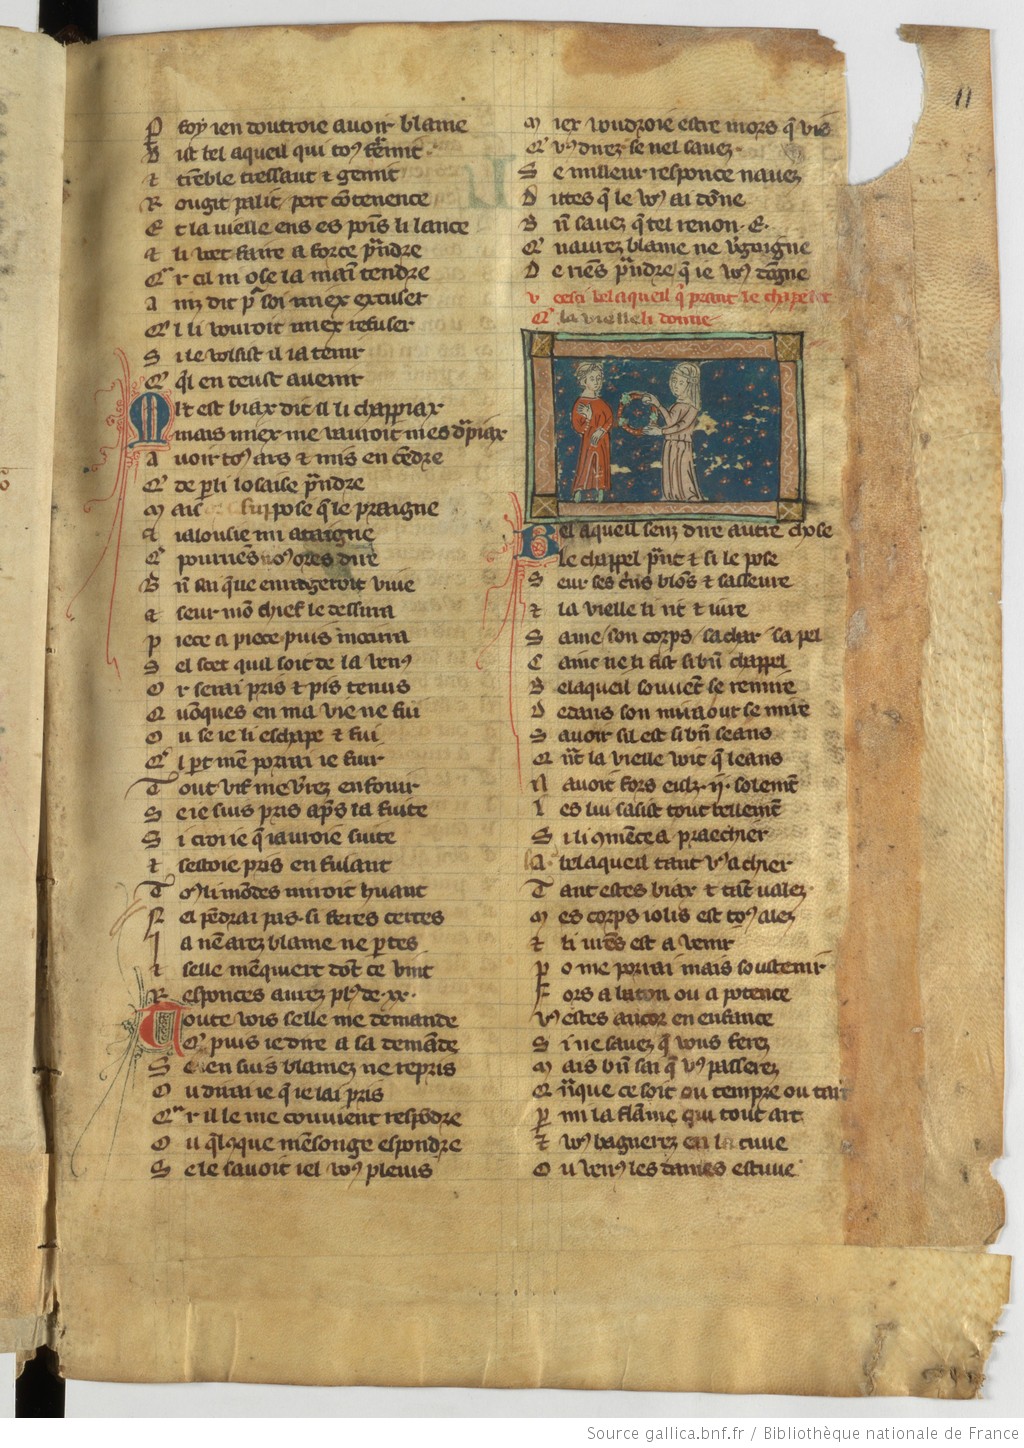 11
P foy ien doutroie auoir blame
B ist bel aqueil qui toꝰ fremit
Et tremble tressaut ⁊ gemit
R ougit palit pert cōtenence
E t la vielle ens es poīs li lance
Et li vuet faire a force pⁿndre
Qr cil ni ose la main tendre
A inz dit pͬ soi miex excuser
Qͥl li vouroit miex refuser
S i le volsist il ia tenir
Qͥ qͥl en deust auenir
Mlt est biax dit il li chappiax
mais miex me vauroit mes dͣpiax
A uoir toꝰ ars ⁊ mis en cēdre
Qͥ de ꝑ li losaise pⁿndre
M ais suppose qͥ le praigne
A ialousie mi ataigne
Qͥ pouriesmoꝰ ores dire
B ñ sai quele enrageroit viue
Et seur mō chief le dessirra
P iece a piece puis mocirra
S el scet quil soit de la venꝰ
O r serai pris ⁊ pis tenus
Q uōques en ma vie ne fui
O u se ie li eschape ⁊ fui
Qͥl pͬt mē porrai ie fuir
T out vif me vͬrez enfouir
S e ie suis pris apͬs la fuite
S i croi ie qͥ iauroie suite
Et sestoie pris en fuiant
T oꝰ li mōdes miroit huant
N el pͬndrai pas si feres certes
I a nē arez blame ne ꝑtes
Et selle mēquiert dōt ce vint
R esponces aurez plꝰ de .xx.
Toute vois selle me demande
Qͥ puis ie dire a sa demāde
S e ien suis blamez ne repris
O u dirai ie qͥ ie lai pris
Qr il le me couuient respōdre
O u qͥlqͥque mēsonge espondre
S ele sauoit iel voꝰ pleuis
M iex voudroie estre mors qͥ vis
Qͥ vꝰ direz se nel sauez
S e milleur responce nauez
D ittes qͥ le voꝰ ai dōne
B ñ sauez qͥ tel renon .E.
Qͥ naurez blame ne vͬgoigne
D e riēs pⁿndre qͥ ie voꝰ dōgne
V cesci belaqueil qͥ prant le chapelet
Qͥ la vielle li donne
Bel aqueil senz dire autre chose
le chappel pⁿnt ⁊ si le pose
S eur ses crīs blōs ⁊ sasseure
Et la vielle li rit ⁊ iure
S ame son corps sa char sa pel
C ainc ne li fist si bñ chappel
B elaqueil souuēt se remire
D edans son miraour se mire
S auoir sil est si bñ seans
Qñt la vielle voit qͥ leans
N auoit fors eulz .ij. solemēt
L es lui sasist tout bellemēt
S i li ꝯmēce a praechier
A belaqueil tant vꝰ a chier
T ant estes biax ⁊ tāt valez
M es corps iolis est toꝰ alez
Et li vr̄es est a venir
P o me porrai mais soustenir
F ors a baton ou a potence
Vꝰ estes ancor en enfance
S i ne sauez qͥ vous ferez
M ais bñ sai qͥ vꝰ passerez
Q ñque ce soit ou tempre ou tart
P ͬ mi la flāme qui tout art
Et voꝰ bagnerez en la cuue
O u venꝰ les dames estuue
Source gallica.bnf.fr / Bibliothèque nationale de France